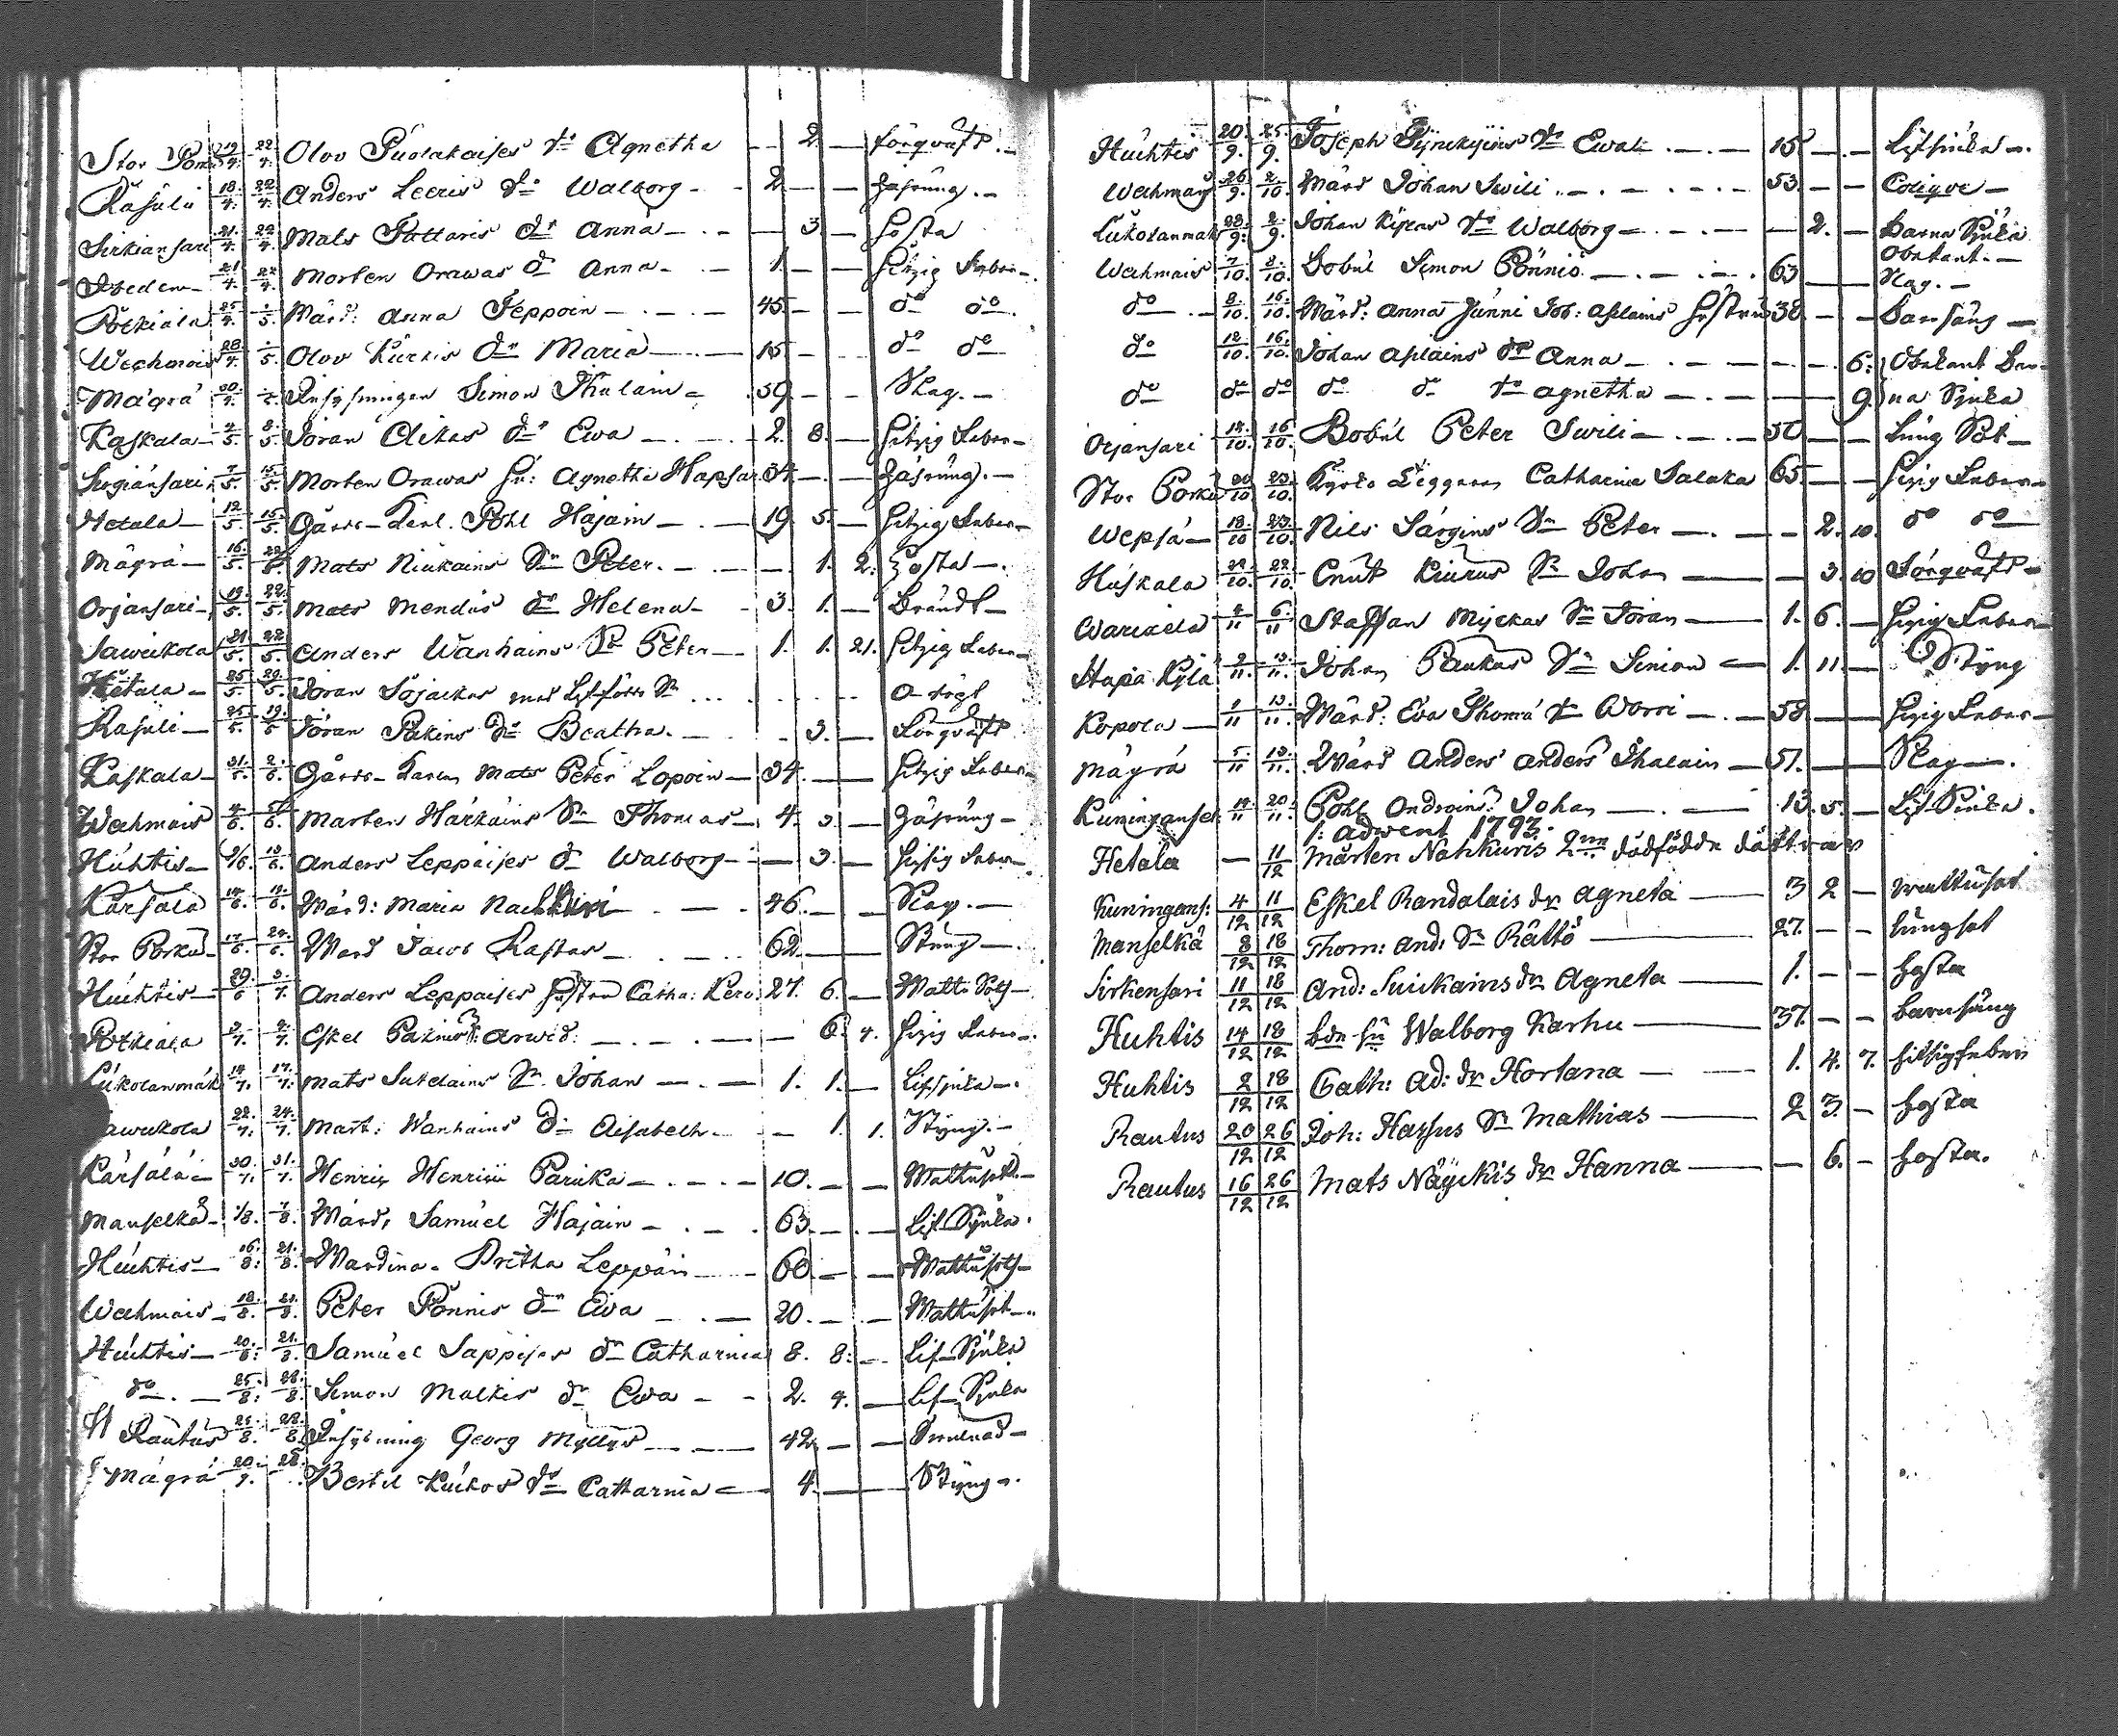 Stor Pork 19/4. 22/4. Olov Puolakaises dr Agnetha — 2. — förqväft. —
Rasuli 18./4. 22./4. Anders Leeris dr Walborg — 2. — — Håsning. —
Sirkiansari 21./4. 22/4. Mats Pattaris dr Anna — — 3. — Hosta
21/4. 22/4. Morten Orawas dr Anna — 1. — — Hitzig Feber —
Potkiala 25/4. 1/5. Wärd: Anna Teppoin — 45. — — do do.
Wechmais 28/4. 1/5. Olov Kurkis dr Maria — 15 — — do do
Mägrä 30/4. Inhysningen Simon Thalain — 59. — — Slag. —
Kaskala — 4/5. 8./5. Jöran Olikas dr Ewa — 2. 8. — Hitzig Feber —
7/5. 15/5. Morten Orawas hu: Agnetha Hapsar 34. — — Håsning. —
Hetala — 12/5. 15/5. Gårds-Karl. Pohl Hajain — 19. 5. — Hitzig Feber —
Mägrä — 16./5. 22/5. Mats Niukains Sn Peter. — — 1. 2. Hosta —.
Orjansari — 19./5. 22./5. Mats Mendus dr Helena — 3. 1. — Brändt —
Sawikola 21/5. 22/5. Anders Wanhains Sn Peter — 1. 1. 21. Hitzig Feber —
Hetala — 25/5. 29./5. Jöran Sojackas
Rasuli — 25/5. Jöran Päkins dr Beatha. — — 3. — Förqväft
Kaskala — 31./5. 2./6. Gårds-Karln Mats Peter Lopoin — 34. — — Hitzig Feber —
Wechmais 4/6. 5/6. Marten Härkäins Sn Thomas — 4. 3. — Håsning —
Huhtis — 9/6. 13/6. Anders Leppäises dr Walborg — — 3. — Hitsig Feber —
Kärsälä 14./6. Wärd: Maria Nachkuri — 46. — — Slag. —
Stor Porku — 17/6. 24./6. Wärd Jacob Rastas — 62. — Stüng —.
Huchtis — 29./6 3./7. Anders Leppäises hustru Catha: Kero. 27. 6. — Mattu Sot —
Potkiala 2/7. Eskel Pakins S: Arwid: — — 6. 4. Hizig Feber —.
Lukolanmäk 14/7. 17./7. Mats Sutelains Sn Johan — 1. 1. — Lifsjuka —.
awikola 22./7. 24./7. Mart: Wanhains dr Elisabeth. — — 1. 1. Styng. —
Kärsälä — 30./7. 31./7. Henrik Henrik Parikka — 10. — — Mattusot —
Manselkä — 1/8. 7/8. Wärd, Samuel Hajain — 63. — — Lif Sjuka.
Huchtis — 16./8. 21./8. Wärdina. Britha Leppäin — 60. — — Mattusot —
Wechmais — 18./8. 21./8. Peter Ponnis dr Ewa — 20. — — Mattusot —.
Huhtis — 20./8. 21./8. Samuel Sappises dr Catharina 8. 8. — Lif-Sjuka
do. — 25./8. 28./8. Simon Malkis dr Ewa — 2. 4. — Lif-Sjuka
Rautus 25./8. 28./8. Inhysning Georg Myllys — 42. — — Svullnad —
Mägrä 20./9. Bertil Kuckos dr Catharina — 4. — — Styng —.
Huchtis 20./9. 25./9. Joseph dr Ewa — 15 — — Lifsjuka —.
Wechmais 26/9. 2./10. Wärd Johan Swili. — 53. — — Colique —
Lukolanmak 28./9. 2./9. Johan Kipras dr Walborg — — 2. — Barna Sjuka
Wechmais 7/10. 8./10. Bobul Simon Pönnis. — 63 Obekant. — Slag. —
do — 8./10. 16./10. Wärd: Anna Junni Joh: Aplains hustru 38. — — Barsäng —
do 12/10. 16./10. Johan Aplains dr Anna — — — 6. Obekant Bar-
do do do do do dr Agnetha — — — 9. na Sjuka
Orjansari 14./10. 16/10. Bobul Peter Swili — 50 — — Lung Sot —
Stor Porku 20/10 23./10. Kyrko Tiggaren Catharina Salaka 65. — — Hizig Feber —
Wepsä — 18./10. 23./10. Nils Särgins Sn Peter — — 2. 10. do do
Huskala 22/10. 22/10. Cnut Kiurus Sn Johan — — 3. 10 Förqväft —
Wariaela 4/11 6./11 Staffan Myckas Sn Jöran — 1. 6. — Hizig Feber —
Hapa Kylä 9/11. 13./11. Johan Paukas Sn Simon — 1. 11. — Styng
Kopola — 1/11 13./11. Wärd: Eva Thoma dr Worri — 58. — — Hizig Feber —
Mägrä 5./11 13./11. Wärd Anders Anders Thalain — 51. — — Slag —.
Kuninganse 14./11 20./11. Pohl Androins Johan — 13. 5. — Lif Sjuka.
1: advent 1793.
Hetala — 11/12 Mårten Nahkuris 2ne dödfödde döttrar
Kuningans: 4/12 11/12 Eskel Randalais dr Agneta — 3 2 — mattusot
Manselkä 8/12 18/12 Thom: And: Sn Rättö — 27. — — lungsot
Sirkensari 11/12 18/12 And: Suikains dr Agneta — 1. — — hosta
Huhtis 14/12 18/12 bdn hu Walborg Karhu — 37. — — barnsäng
Huhtis 2/12 18/12 Cath: Ad: dr Hortana — 1. 4. 7. hitsigfeber
Rautus 20/12 26/12 Joh: Hassus Sn Mathias — 2 3. — hosta
Rautus 16/12 26/12 Mats Näyckis dr Hanna — — 6. — hosta.